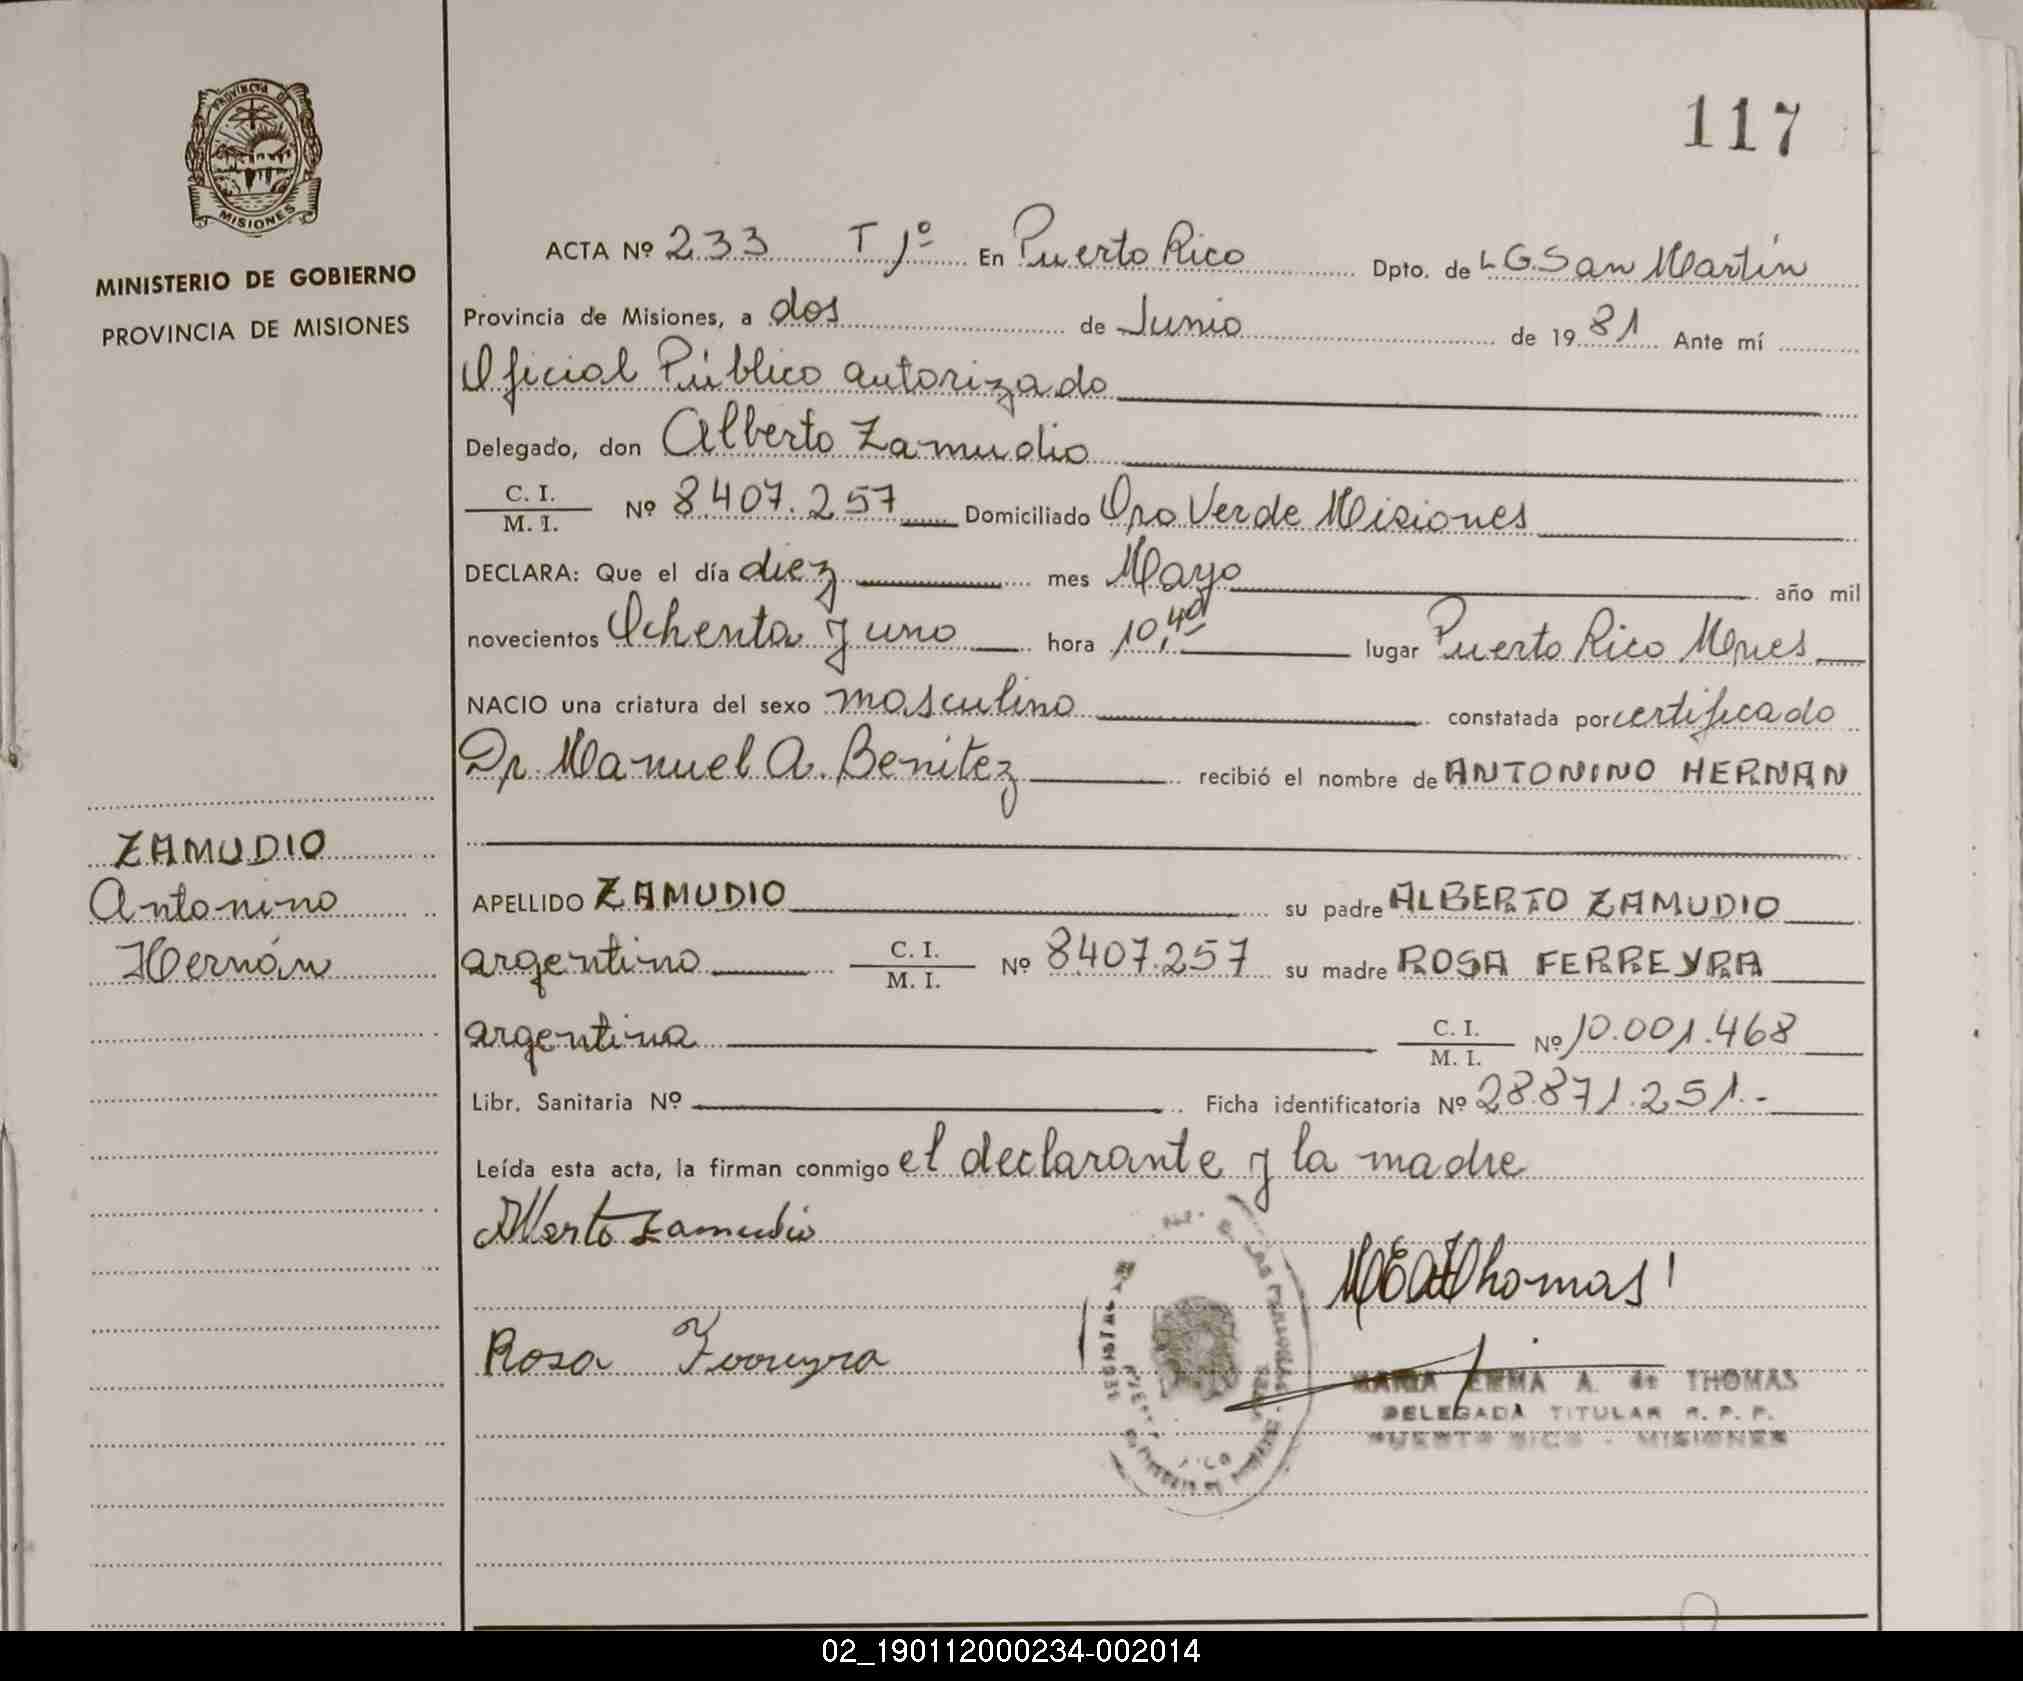 PROVINCIA DE
MISIONES
MINISTERIO DE GOBIERNO
PROVINCIA DE MISIONES
117
ACTA Nº 233 T 1º En Puerto Rico Dpto. de L G. San Martín
Provincia de Misiones, a dos de Junio de 1981 Ante mí
Oficial Público autorizado
Delegado, don Alberto Zamudio
C. I.
M. I. Nº 8.407.257 Domiciliado Oro Verde Misiones
DECLARA: Que el día diez mes Mayo año mil
novecientos Ochenta y uno hora 10,40 lugar Puerto Rico Mnes
NACIO una criatura del sexo masculino constatada por certificado
Dr. Manuel A. Benitez recibió el nombre de ANTONINO HERNAN
ZAMUDIO
Antonino
Hernán
APELLIDO ZAMUDIO su padre ALBERTO ZAMUDIO
argentino C. I.
M. I. Nº 8.407.257 su madre ROSA FERREYRA
argentina C. I.
M. I. Nº 10.001.468
Libr. Sanitaria Nº Ficha identificatoria Nº 28.871.251.-
Leída esta acta, la firman conmigo el declarante y la madre
Alberto Zamudio
Thomas
Rosa Ferreyra
MARIA EMMA A. de THOMAS
DELEGADA TITULAR R. P. P.
PUERTO RICO - MISIONES
02_190112000234-002014